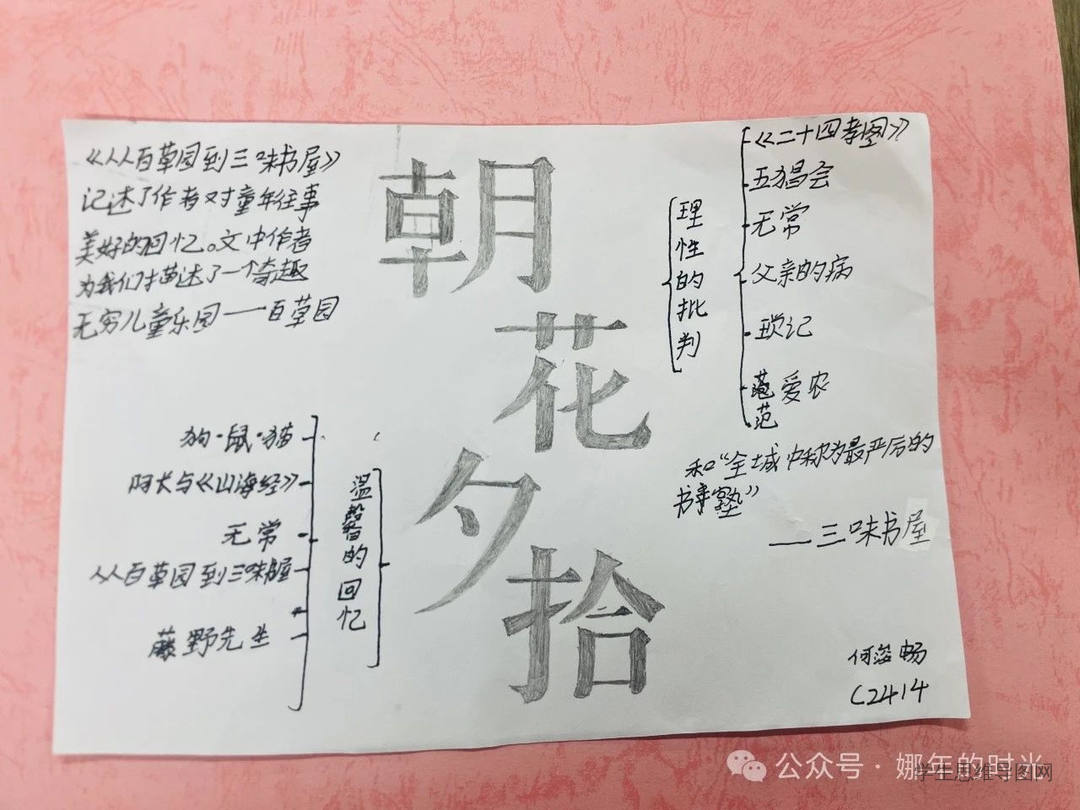 《从百草园到三味书屋》
记述了作者对童年往事
美好的回忆。文中作者
为我们描述了一个奇趣
无穷儿童乐园——百草园
朝
花
夕
拾
理性的批判
《二十四孝图》
五猖会
无常
父亲的病
琐记
范爱农
范
狗·鼠·猫
阿长与《山海经》
无常
从百草园到三味书屋
藤野先生
温馨的回忆
和“全城中称为最严厉的
书塾”
——三味书屋
何 畅
C2414
公众号·娜年的时光
学生思维导图网